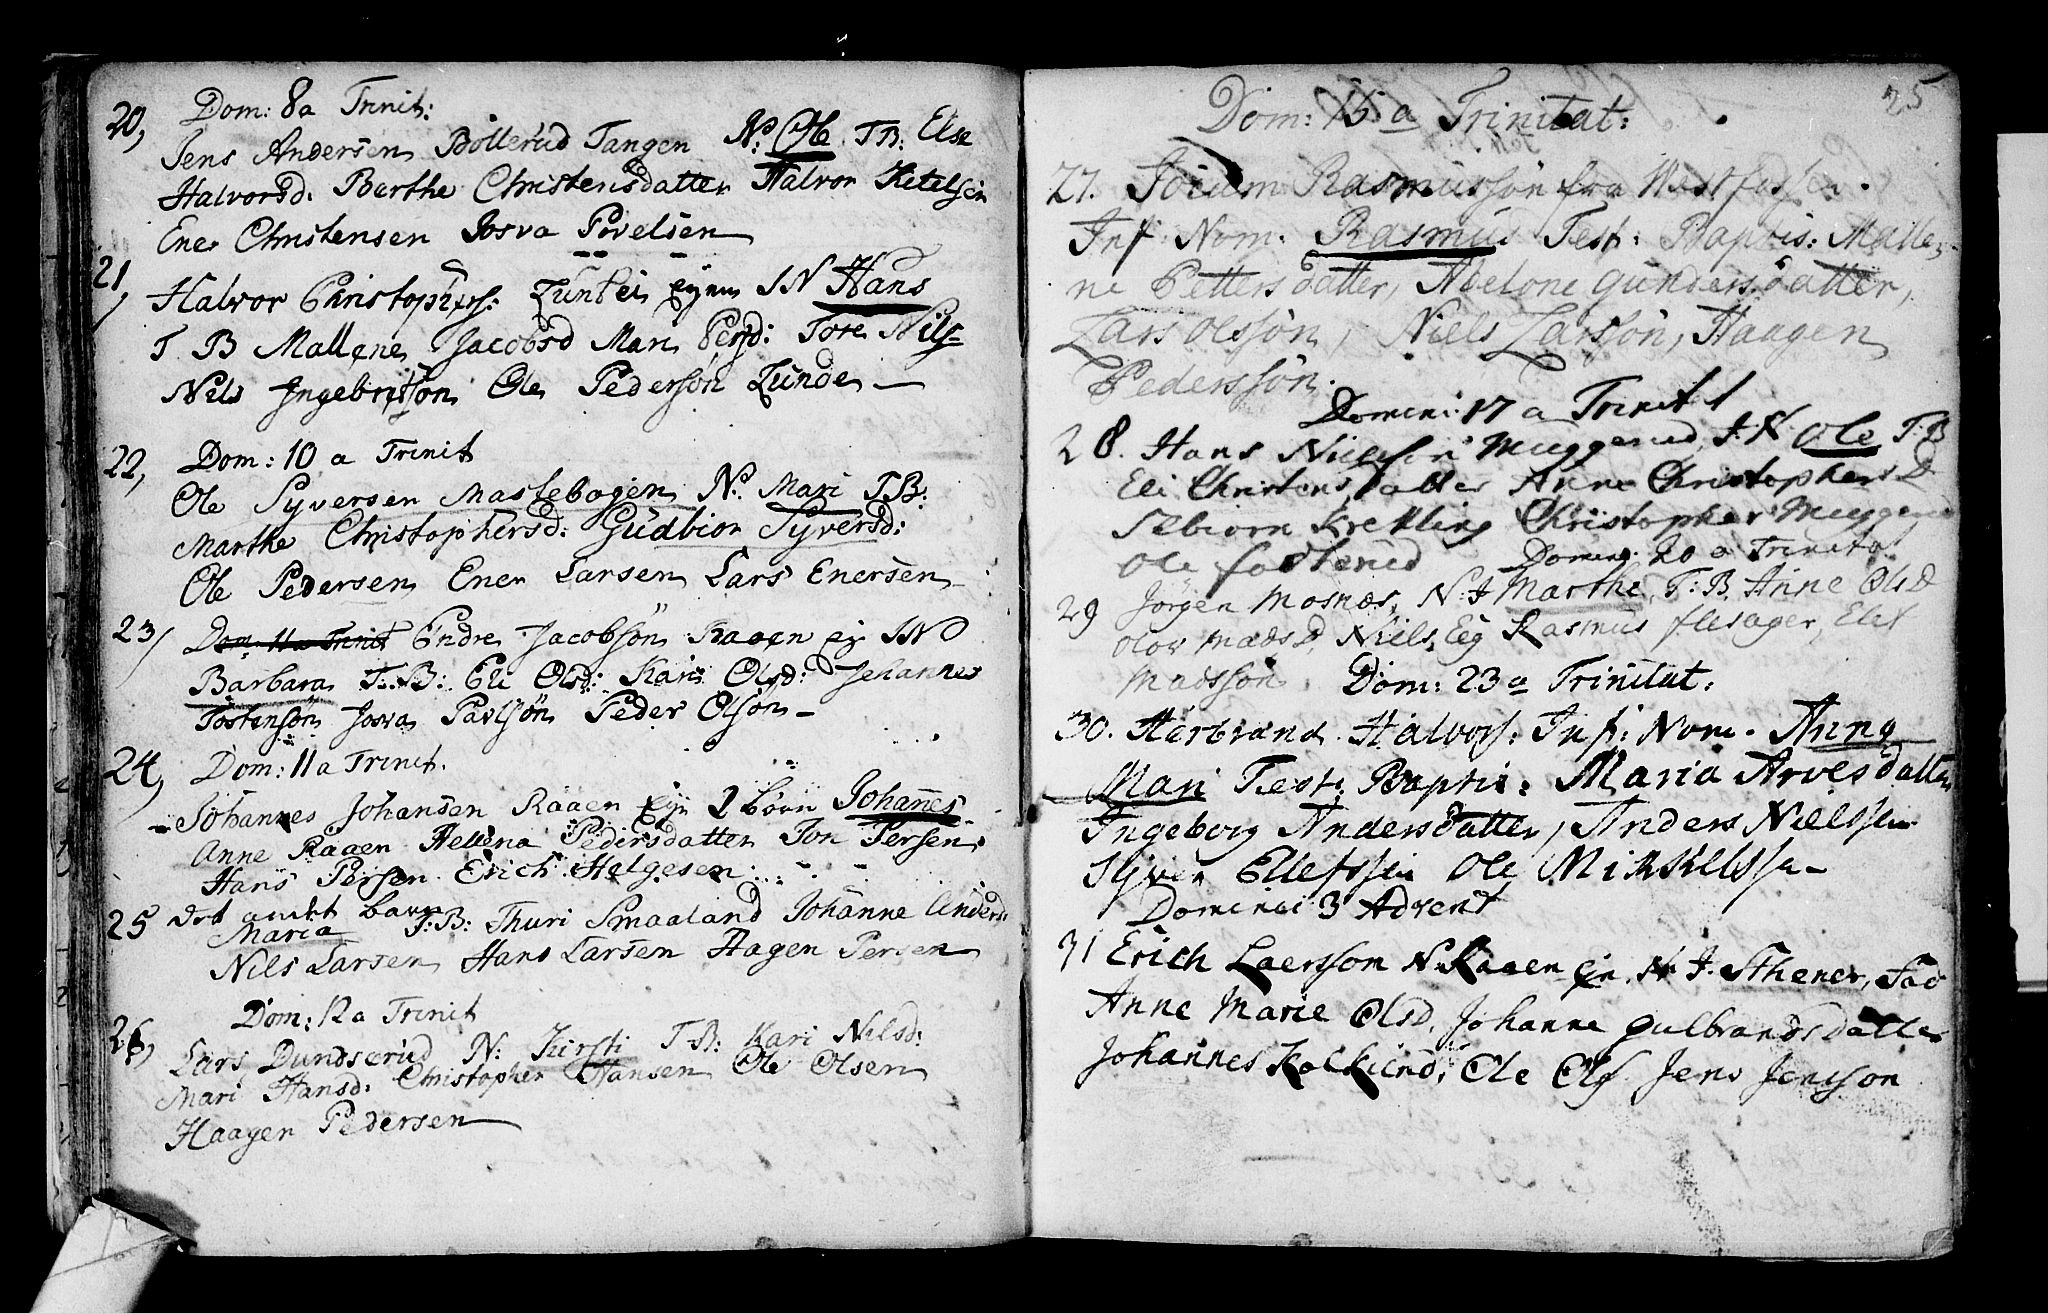 Dom: 8a Trinit:
20, Jens Andersen Bollerud Tangen N: Ole T B: Else
Halvorsd: Berthe Christensdatter Halvor Ketelsen
Ener Christensen Josva Povelsen
21, Halvor Christophers: Lunde ejer I N Hans
T B Mallene Jacobsd Mari Persd: Tore Nils-
Nils Ingebretsøn Ole Pedersøn Lunde
22, Dom: 10 a Trinit
Ole Syversen Mastebogen N: Mari T B:
Marthe Christophersd: Gudbior Syversd:
Ole Pedersen Ener Larsen Lars Enersen
23, Dom: 11a Trinit Endre Jacobsøn Raaen ej I N
Barbara T: B: Eli Olsd: Kari Olsd: Jehannes
Tostensøn Josva Pavlsøn Peder Olsøn
24, Dom: 11 a Trinit.
Johannes Johansen Raaen Ejn 2 børn Johannes
Anne Raaen Hellena Pedersdatter Jon Persen
Hans Persen Erich Helgesen
25 det andet barn
Maria T: B: Thuri Smaaland Johanne Anders:
Nils Larsen Hans Larsen Hagen Persen
Dom: 12 a Trinit
26, Lars Dundserud N: Kirsti T B: Kari Nilsd:
Mari Hansd: Christopher Hansen Ole Olsen
Haagen Pedersen
25
Dom: 15 a Trinitat:
27. Joium Rasmussøn fra Westfossen.
Inf Nom: Rasmus Test: Baptis: Malle-
ne Pettersdatter, Abelone Gundersdatter,
Lars Olssøn, Niels Larssøn, Haagen
Pederssøn.
Domini: 17 a Trinit
28. Hans Nielsen Muggerud, I: N Ole T: B
Eli Christensdatter Anne Christophers D
Sebiorn Krekling Christopher Muggerud
Ole
Doming. 20 a Trinitat
29 Jørgen Mosnæs, N: I Marthe, T: B, Anne Ols D
Mads D, Niels Eig Rasmus flesager, Elef
Madssøn. Dom: 23 a Trinitat:
30. Herbrand Halvors: Inf: Nom. Anne
Mari Test: Baptis: Maria Arvesdatter
Ingeborg Andersdatter, Anders Nielssen
Syver Ellefssen Ole Mikkelssen
Dominei 3 Advent
31 Erich Laerssøn N. Raaen ejn. N I. Sthener, Fad
Anne Marie Olsd, Johanne gulbrandsdatter
Johannes Kolkiend, Ole Ols Jens Jensøn